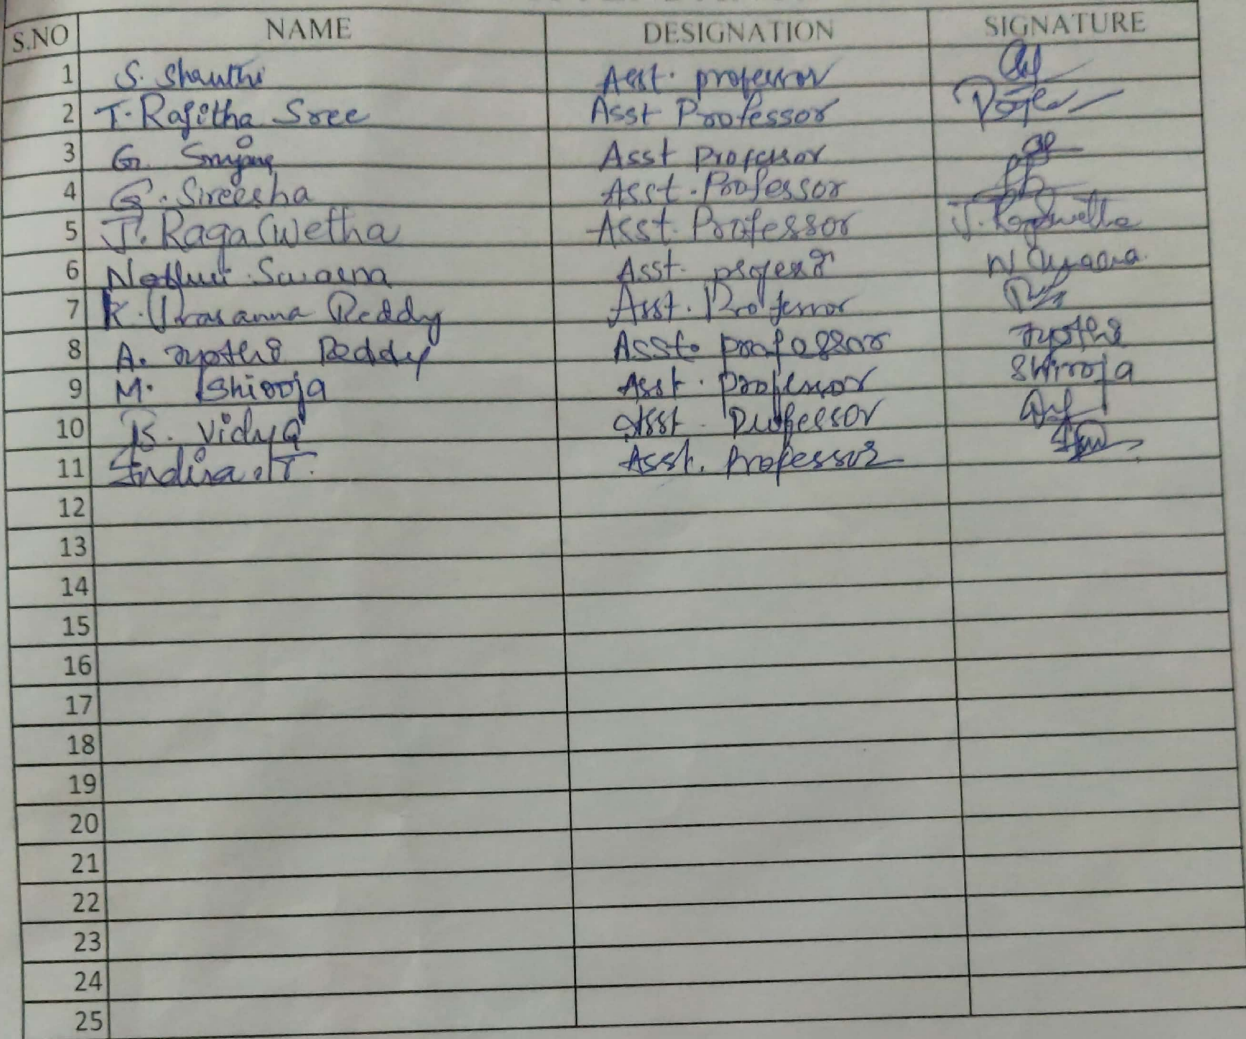 S.NO NAME DESIGNATION SIGNATURE
1 S. Shanthi Asst. professor
2 T. Rajitha Sree Asst Professor
3 G. Asst Professor
4 G. Sireesha Asst. Professor
5 J. Raga Swetha Asst. Professor J. Ragaswetha
6 Swarna Asst.
7 K. Prasanna Reddy Asst. Professor
8 A. Jyothi Reddy Asst. professor Jyothi
9 M. Shirooja Asst. professor Shirooja
10 B. Vidya Asst. Professor
11 Indira. T. Asst. Professor
12
13
14
15
16
17
18
19
20
21
22
23
24
25